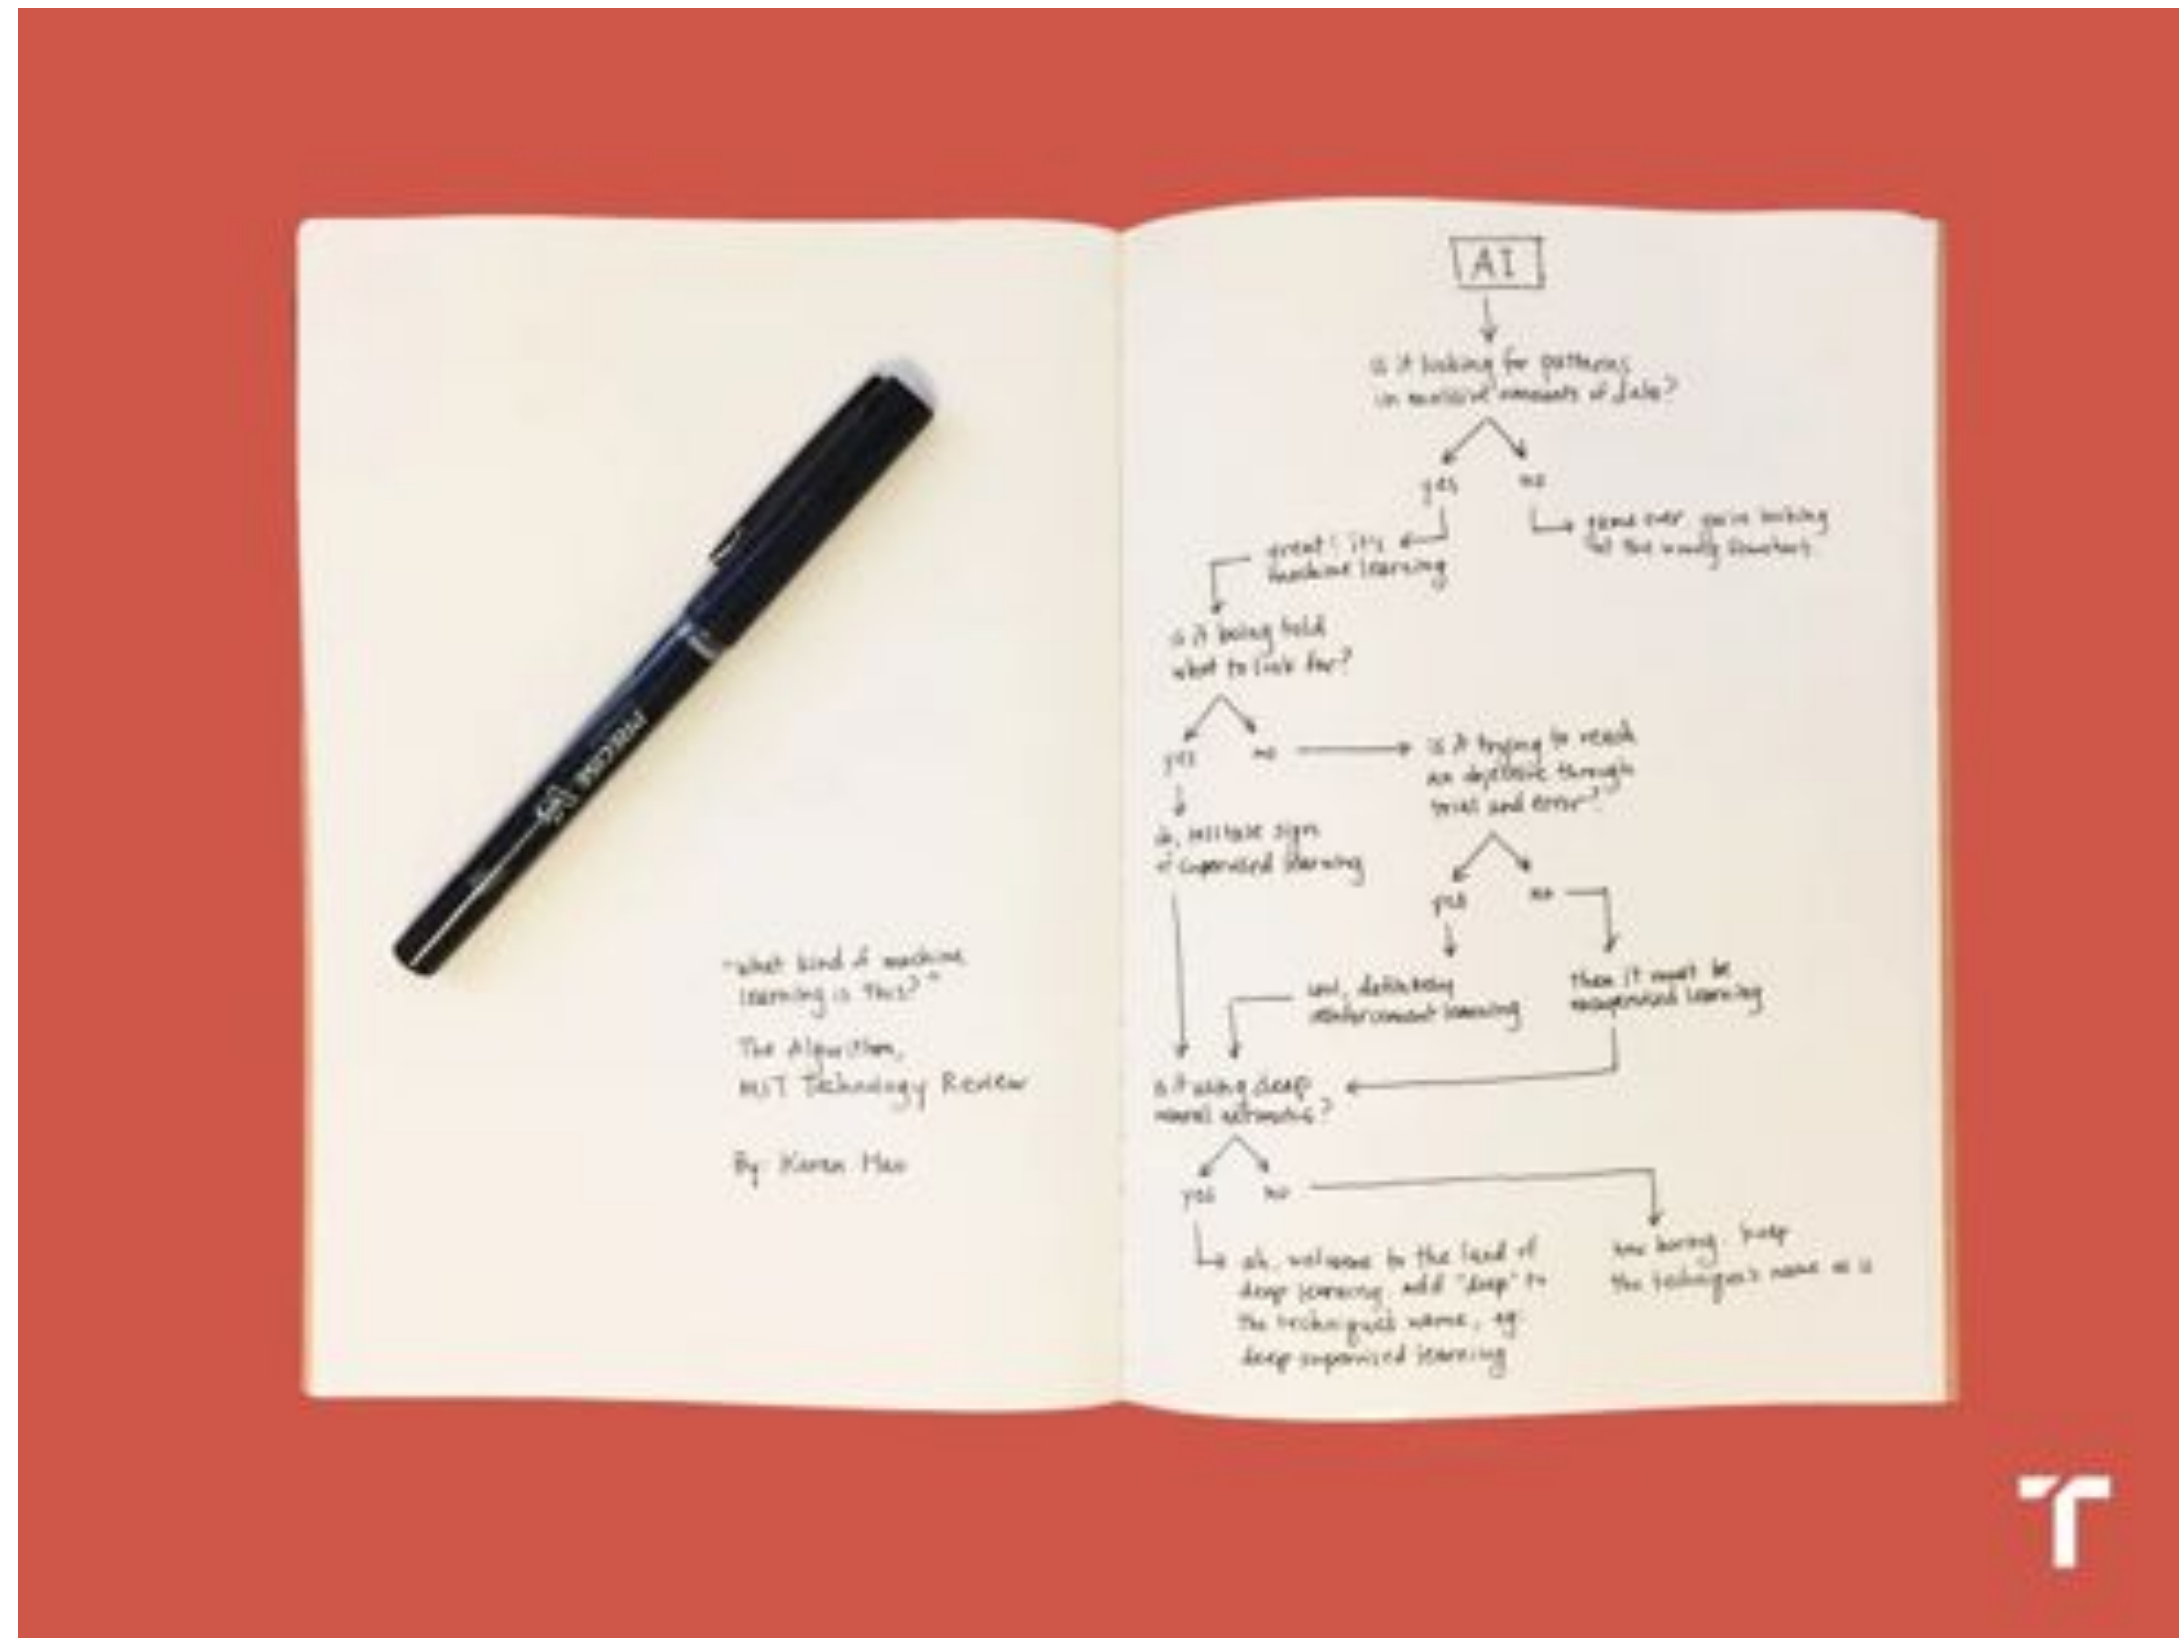 PRECISE V5
"what kind of machine
learning is this?"
The Algorithm,
MIT Technology Review
By Karen Hao
AI
is it looking for patterns
in massive amounts of data?
yes
no
great! it's
machine learning
game over. you're looking
at the wrong flowchart.
is it being told
what to look for?
yes
no
is it trying to reach
an objective through
trial and error?
telltale sign
of supervised learning
yes
no
definitely
reinforcement learning
then it must be
unsupervised learning
is it using deep
neural networks?
yes
no
ah, welcome to the land of
deep learning. add "deep" to
the technique's name, eg:
deep supervised learning
boring. keep
the technique's name as is